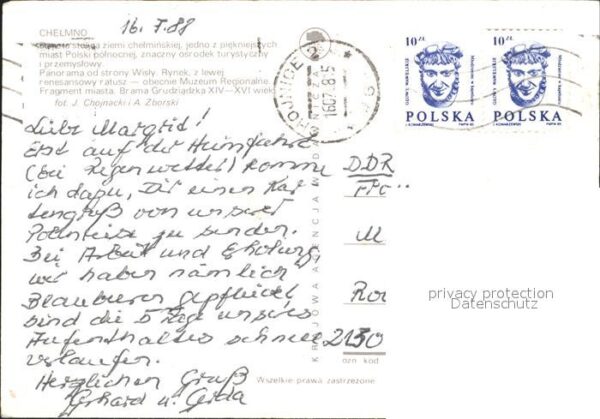 16. 7. 88
CHEŁMNO
stolica ziemi chełmińskiej, jedno z piękniejszych
miast Polski północnej, znaczny ośrodek turystyczny
i przemysłowy.
Panorama od strony Wisły. Rynek, z lewej
renesansowy ratusz — obecnie Muzeum Regionalne.
Fragment miasta. Brama Grudziądzka XIV—XVI wiek
fot. J. Chojnacki i A. Zborski
CHOJNICE 2
16.07.88 15
Liebe Margrid!
Erst auf der Heimfahrt
(bei Regenwetter) komme
ich dazu, Dir einen Kar
tengruß von unserer
Polenreise zu senden.
Bei Arbeit und Erholung
wir haben nämlich
Blaubeeren gepflückt
sind die 5 Tage unseres
Aufenthaltes schnell
verlaufen.
Herzlichen Gruß
Gerhard u. Gerda
KRAJOWA AGENCJA WYDAWNICZA
Wszelkie prawa zastrzeżone
10 ZŁ
POLSKA
10 ZŁ
POLSKA
DDR
M
2130
ozn kod
privacy protection
Datenschutz